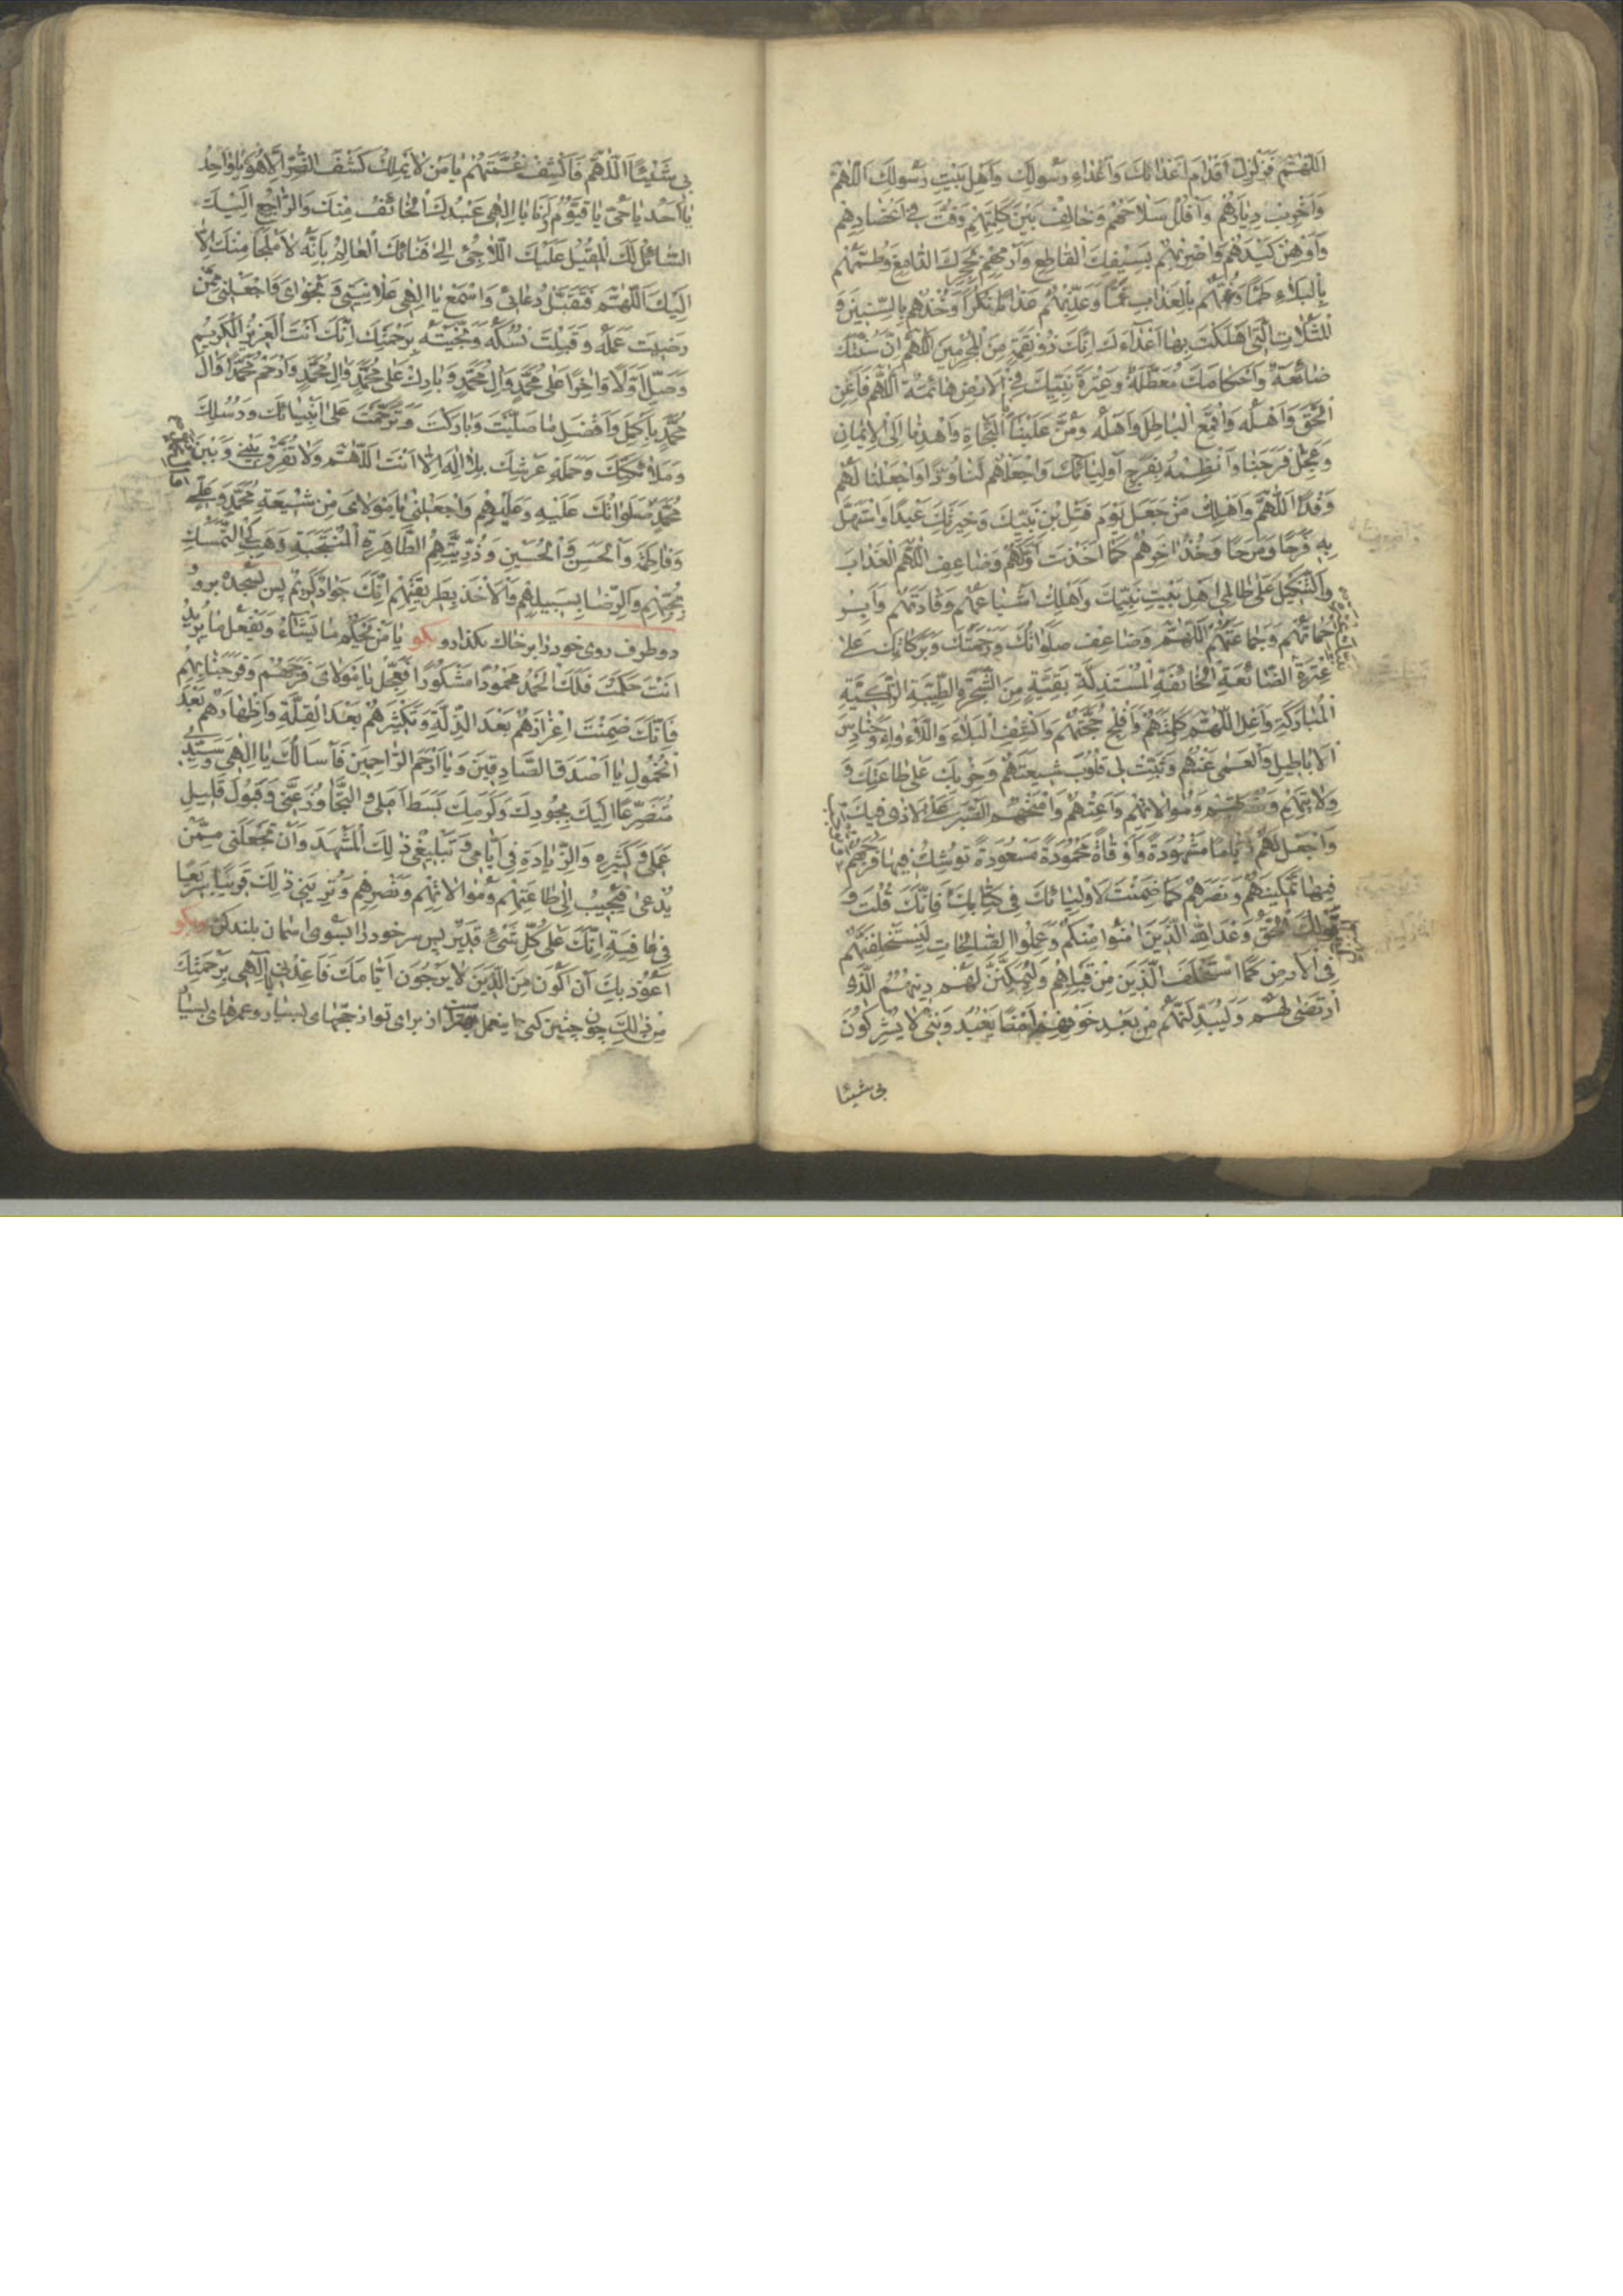 اَللّهُمَّ فَزَلْزِلْ اَقْدامَ اَعْدائِكَ وَاَعْداءِ رَسُولِكَ وَاَهْلِ بَيْتِ رَسُولِكَ اَللّهُمَّ
وَاَخْرِبْ دِيارَهُمْ وَاَفْلُلْ سِلاحَهُمْ وَخالِفْ بَيْنَ كَلِمَتِهِمْ وَفُتَّ فِي اَعْضادِهِمْ
وَاَوْهِنْ كَيْدَهُمْ وَاضْرِبْهُمْ بِسَيْفِكَ القاطِعِ وَارْمِهِمْ بِحَجَرِكَ الدّامِغِ وَطُمَّهُمْ
بِالْبَلاءِ طَمًّا وَقُمَّهُمْ بِالْعَذابِ قَمًّا وَعَذِّبْهُمْ عَذابًا نُكْرًا وَخُذْهُمْ بِالسِّنينَ وَ
الْمَثُلاتِ الَّتي اَهْلَكْتَ بِها اَعْداءَكَ اِنَّكَ ذُو نِقْمَةٍ مِنَ الْمُجْرِمينَ اَللّهُمَّ اِنَّ سُنَّتَكَ
ضائِعَةٌ وَاَحْكامَكَ مُعَطَّلَةٌ وَعِتْرَةَ نَبِيِّكَ فِي الْاَرْضِ هائِمَةٌ اَللّهُمَّ فَاَعِنِ
الْحَقَّ وَاَهْلَهُ وَاقْمَعِ الْباطِلَ وَاَهْلَهُ وَمُنَّ عَلَيْنا بِالنَّجاةِ وَاهْدِنا اِلَى الْاِيمانِ
وَعَجِّلْ فَرَجَنا وَانْظِمْهُ بِفَرَجِ اَوْلِيائِكَ وَاجْعَلْهُمْ لَنا وُدًّا وَاجْعَلْنا لَهُمْ
وَفْدًا اَللّهُمَّ وَاَهْلِكْ مَنْ جَعَلَ يَوْمَ قَتْلِ بْنِ نَبِيِّكَ وَخِيَرَتِكَ عيدًا وَاسْتَهَلَّ
بِهِ فَرَحًا وَمَرَحًا وَخُذْ اٰخِرَهُمْ كَما اَخَذْتَ اَوَّلَهُمْ وَضاعِفِ اللّهُمَّ الْعَذابَ
وَالتَّنْكيلَ عَلى ظالِمي اَهْلِ بَيْتِ نَبِيِّكَ وَاَهْلِكْ اَشْياعَهُمْ وَقادَتَهُمْ وَاَبِرْ
حُماتَهُمْ وَجَماعَتَهُمْ اَللّهُمَّ وَضاعِفْ صَلَواتِكَ وَرَحْمَتَكَ وَبَرَكاتِكَ عَلى
عِتْرَةِ الضّائِعَةِ الْخائِفَةِ الْمُسْتَذَلَّةِ بَقِيَّةٍ مِنَ الشَّجَرَةِ الطَّيِّبَةِ الزّاكِيَةِ
الْمُبارَكَةِ وَاَعْلِ اللّهُمَّ كَلِمَتَهُمْ وَاَفْلِجْ حُجَّتَهُمْ وَاكْشِفِ الْبَلاءَ وَاللَّاْواءَ وَحَنادِسَ
الْاَباطيلِ وَالْعَمى عَنْهُمْ وَثَبِّتْ قُلُوبَ شيعَتِهِمْ وَحِزْبِكَ عَلى طاعَتِكَ وَ
وِلايَتِهِمْ وَنُصْرَتِهِمْ وَمُوالاتِهِمْ وَاَعِنْهُمْ وَامْنَحْهُمُ الصَّبْرَ عَلَى الْاَذى فيكَ
وَاجْعَلْ لَهُمْ اَيّامًا مَشْهُودَةً وَاَوْقاتًا مَحْمُودَةً مَسْعُودَةً تُوشِكُ فيها فَرَجَهُمْ
فيها تَمْكينَهُمْ وَنَصْرَهُمْ كَما ضَمِنْتَ لِاَوْلِيائِكَ في كِتابِكَ فَاِنَّكَ قُلْتَ وَ
قَوْلُكَ الْحَقُّ وَعَدَ اللهُ الَّذينَ اٰمَنُوا مِنْكُمْ وَعَمِلُوا الصّالِحاتِ لَيَسْتَخْلِفَنَّهُمْ
فِي الْاَرْضِ كَمَا اسْتَخْلَفَ الَّذينَ مِنْ قَبْلِهِمْ وَلَيُمَكِّنَنَّ لَهُمْ دينَهُمُ الَّذِي
ارْتَضى لَهُمْ وَلَيُبَدِّلَنَّهُمْ مِنْ بَعْدِ خَوْفِهِمْ اَمْنًا يَعْبُدُونَني لا يُشْرِكُونَ
بي شيئا
بي شَيْئًا اَللّهُمَّ فَاكْشِفْ غُمَّتَهُمْ يا مَنْ لا يَمْلِكُ كَشْفَ الضُّرِّ اِلّا هُوَ يا واحِدُ
يا اَحَدُ يا حَيُّ يا قَيُّومُ اَنَا يا اِلهي عَبْدُكَ الْخائِفُ مِنْكَ وَالرّاجِعُ اِلَيْكَ
السّائِلُ لَكَ الْمُقْبِلُ عَلَيْكَ اللّاجِئُ اِلى فَنائِكَ الْعالِمُ بِاَنَّهُ لا مَلْجَاَ مِنْكَ اِلّا
اِلَيْكَ اَللّهُمَّ فَتَقَبَّلْ دُعائي وَاسْمَعْ يا اِلهي عَلانِيَتي وَنَجْوايَ وَاجْعَلْني مِمَّنْ
رَضيتَ عَمَلَهُ وَقَبِلْتَ نُسُكَهُ وَنَجَّيْتَهُ بِرَحْمَتِكَ اِنَّكَ اَنْتَ الْعَزيزُ الْكَريمُ
وَصَلِّ اَوَّلًا وَاٰخِرًا عَلى مُحَمَّدٍ وَاٰلِ مُحَمَّدٍ وَبارِكْ عَلى مُحَمَّدٍ وَاٰلِ مُحَمَّدٍ وَارْحَمْ مُحَمَّدًا وَاٰلَ
مُحَمَّدٍ بِاَكْمَلِ وَاَفْضَلِ ما صَلَّيْتَ وَبارَكْتَ وَتَرَحَّمْتَ عَلى اَنْبِيائِكَ وَرُسُلِكَ
وَمَلائِكَتِكَ وَحَمَلَةِ عَرْشِكَ بِلا اِلهَ اِلّا اَنْتَ اَللّهُمَّ وَلا تُفَرِّقْ بَيْني وَبَيْنَ
مُحَمَّدٍ صَلَواتُكَ عَلَيْهِ وَعَلَيْهِمْ وَاجْعَلْني يا مَوْلايَ مِنْ شيعَةِ مُحَمَّدٍ وَعَلِيٍّ
وَفاطِمَةَ وَالْحَسَنِ وَالْحُسَيْنِ وَذُرِّيَّتِهِمُ الطّاهِرَةِ الْمُنْتَجَبَةِ وَهَبْ لِيَ التَّمَسُّكَ
بِحُجَّتِهِمْ وَالرِّضا بِسَبيلِهِمْ وَالْاَخْذَ بِطَريقَتِهِمْ اِنَّكَ جَوادٌ كَريمٌ پس بسجده برو و
دو طرف روى خود را بر خاك بكذار و بكو يا مَنْ يَحْكُمُ ما يَشاءُ وَيَفْعَلُ ما يُريدُ
اَنْتَ حَكَمْتَ فَلَكَ الْحَمْدُ مَحْمُودًا مَشْكُورًا فَعَجِّلْ يا مَوْلايَ فَرَجَهُمْ وَفَرَجَنا بِهِمْ
فَاِنَّكَ ضَمِنْتَ اِعْزازَهُمْ بَعْدَ الذِّلَّةِ وَتَكْثيرَهُمْ بَعْدَ الْقِلَّةِ وَاِظْهارَهُمْ بَعْدَ
الْخُمُولِ يا اَصْدَقَ الصّادِقينَ وَيا اَرْحَمَ الرّاحِمينَ فَاَسْاَلُكَ يا اِلهي وَسَيِّدي
مُتَضَرِّعًا اِلَيْكَ بِجُودِكَ وَكَرَمِكَ بَسْطَ اَمَلي وَالتَّجاوُزَ عَنّي وَقَبُولَ قَليلِ
عَمَلي وَكَثيرِهِ وَالزِّيادَةَ في اَيّامي وَتَبْليغي ذلِكَ الْمَشْهَدَ وَاَنْ تَجْعَلَني مِمَّنْ
يُدْعى فَيُجيبُ اِلى طاعَتِهِمْ وَمُوالاتِهِمْ وَنَصْرِهِمْ وَتُرِيَني ذلِكَ قَريبًا سَريعًا
في عافِيَةٍ اِنَّكَ عَلى كُلِّ شَيْءٍ قَديرٌ پس سر خود را بسوى اسمان بلند كن و بكو
اَعُوذُ بِكَ اَنْ اَكُونَ مِنَ الَّذينَ لا يَرْجُونَ اَيّامَكَ فَاَعِذْني يا اِلهي بِرَحْمَتِكَ
مِنْ ذلِكَ چون چنين كنى اينعمل بهتر است از براى تو از حجّهاى بسيار و عمرهاى بسيا